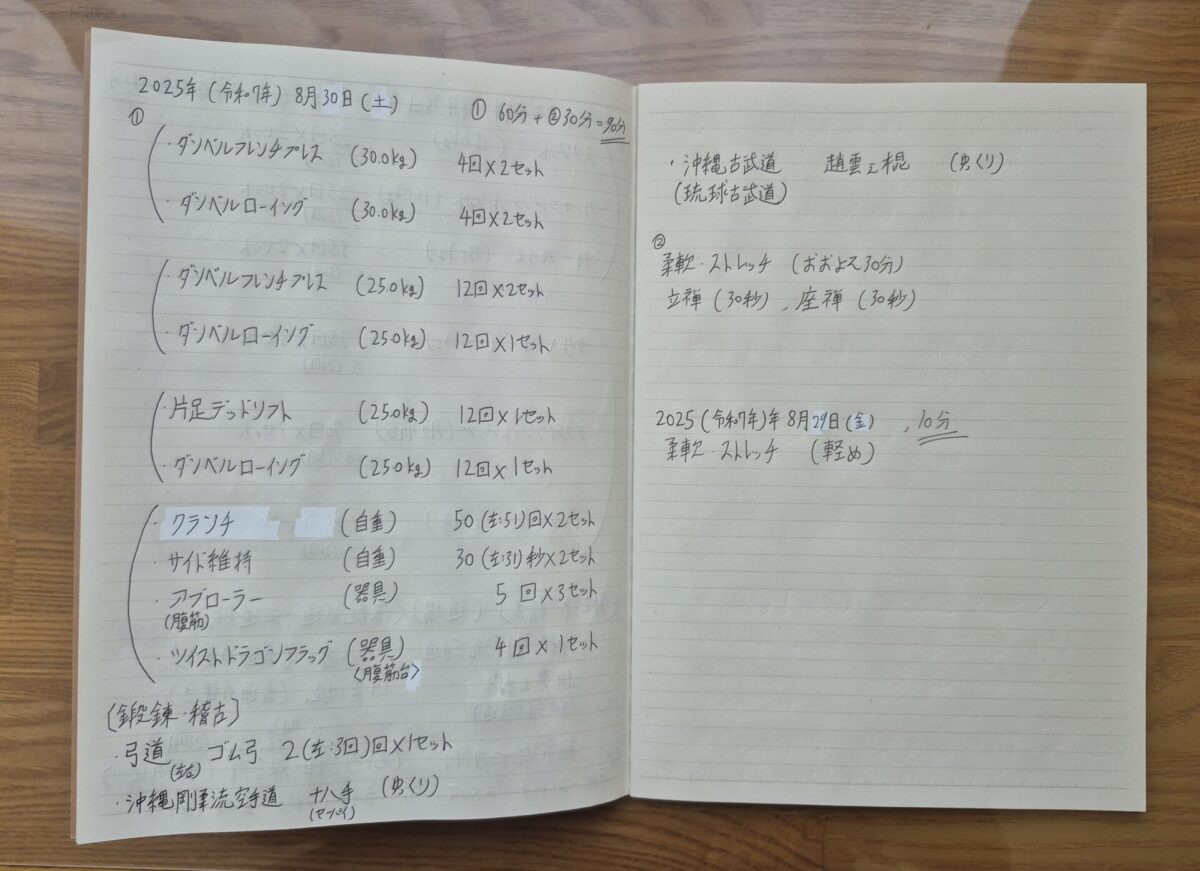 2025年(令和7年) 8月30日(土) ① 60分+②30分=90分
①
・ダンベルフレンチプレス (30.0kg) 4回×2セット
・ダンベルローイング (30.0kg) 4回×2セット
・ダンベルフレンチプレス (25.0kg) 12回×2セット
・ダンベルローイング (25.0kg) 12回×1セット
・片足デッドリフト (25.0kg) 12回×1セット
・ダンベルローイング (25.0kg) 12回×1セット
・クランチ (自重) 50(左:51)回×2セット
・サイド維持 (自重) 30(左:31)秒×2セット
・アブローラー (器具) 5回×3セット
(腹筋)
・ツイストドラゴンフラッグ (器具) 4回×1セット
〈腹筋台〉
[鍛錬・稽古]
・弓道 ゴム弓 2(左:3回)回×1セット
(左右)
・沖縄剛柔流空手道 十八手 (ゆっくり)
(セーパイ)
・沖縄古武道 趙雲之棍 (ゆっくり)
(琉球古武道)
②
柔軟・ストレッチ (おおよそ30分)
立禅(30秒)、座禅(30秒)
2025(令和7年)年8月29日(金)、10分
柔軟・ストレッチ (軽め)